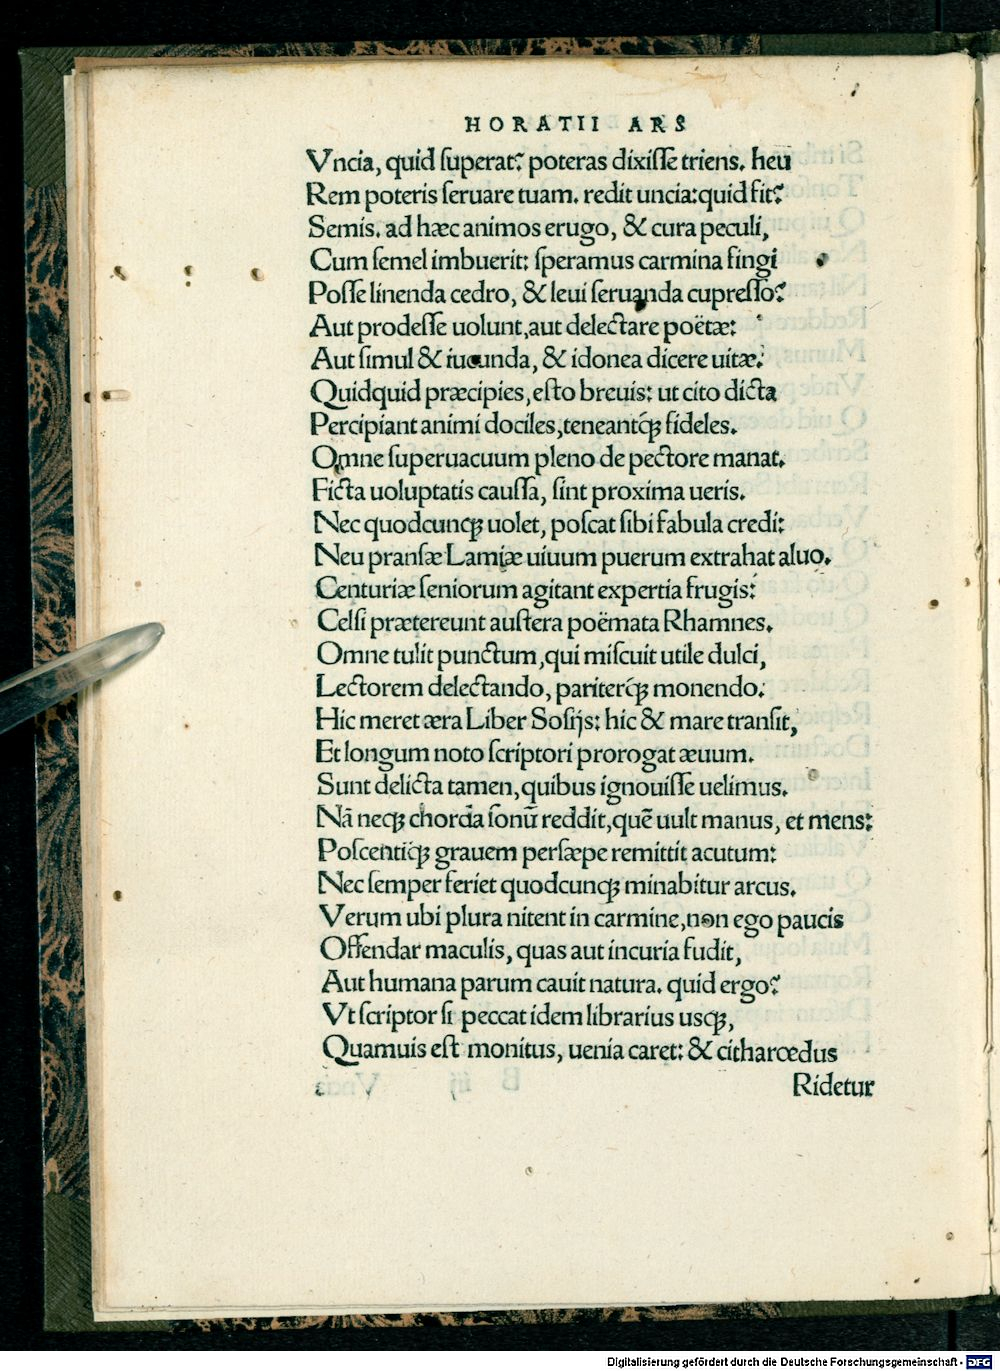 HORATII ARS
Vncia, quid ſuperat? poteras dixiſſe triens. heu
Rem poteris ſeruare tuam. redit uncia: quid fit?
Semis. ad hæc animos erugo, & cura peculi,
Cum ſemel imbuerit: ſperamus carmina fingi
Poſſe linenda cedro, & leui ſeruanda cupreſſo?
Aut prodeſſe uolunt, aut delectare poëtæ:
Aut ſimul & iucunda, & idonea dicere uitæ.
Quidquid præcipies, eſto breuis: ut cito dicta
Percipiant animi dociles, teneantq́ꝫ fideles.
Omne ſuperuacuum pleno de pectore manat.
Ficta uoluptatis cauſſa, ſint proxima ueris.
Nec quodcunqꝫ uolet, poſcat ſibi fabula credi:
Neu pranſæ Lamiæ uiuum puerum extrahat aluo.
Centuriæ ſeniorum agitant expertia frugis:
Celſi prætereunt auſtera poëmata Rhamnes.
Omne tulit punctum, qui miſcuit utile dulci,
Lectorem delectando, pariterq́ꝫ monendo.
Hic meret æra Liber Soſijs: hic & mare tranſit,
Et longum noto ſcriptori prorogat æuum.
Sunt delicta tamen, quibus ignouiſſe uelimus.
Nā neqꝫ chorda ſonū reddit, quē uult manus, et mens:
Poſcentiq́ꝫ grauem perſæpe remittit acutum:
Nec ſemper feriet quodcunqꝫ minabitur arcus.
Verum ubi plura nitent in carmine, non ego paucis
Offendar maculis, quas aut incuria fudit,
Aut humana parum cauit natura. quid ergo?
Vt ſcriptor ſi peccat idem librarius uſqꝫ,
Quamuis eſt monitus, uenia caret: & citharœdus
Ridetur
Digitalisierung gefördert durch die Deutsche Forschungsgemeinschaft - DFG